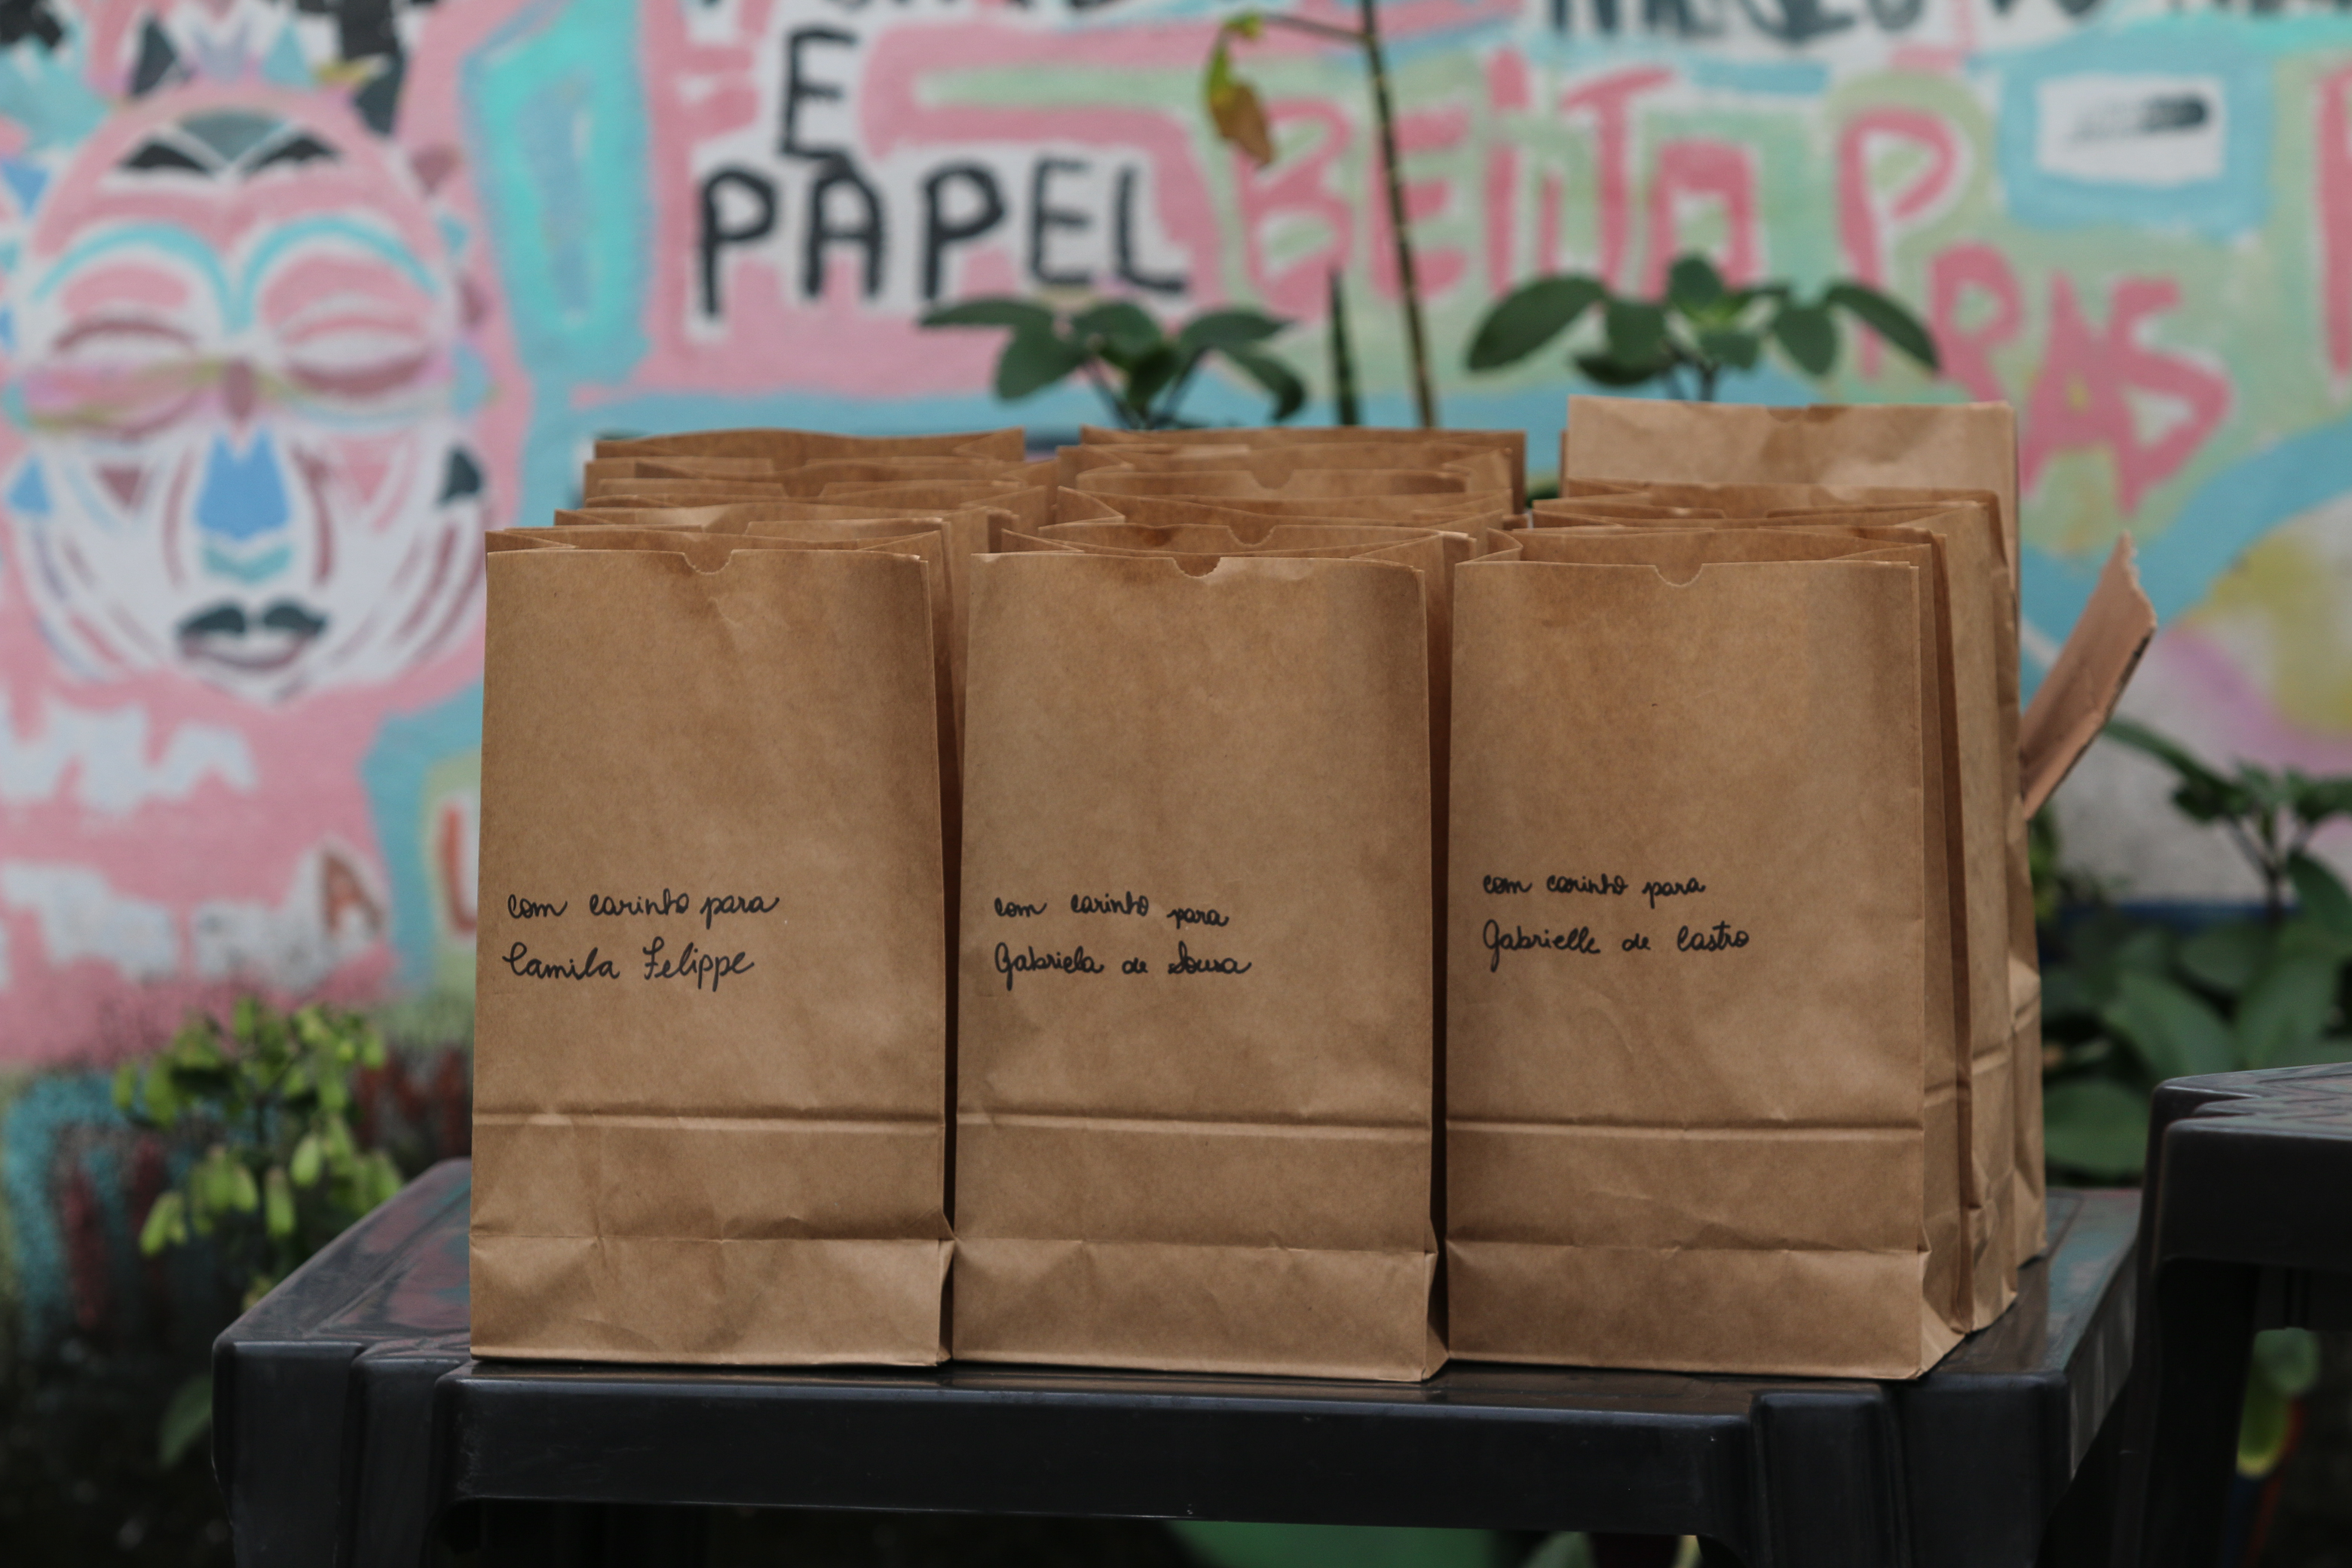 E
PAPEL
BENTO P
RAS
com carinho para
Camila Felippe
com carinho para
Gabriela de Sousa
com carinho para
Gabrielle de Castro